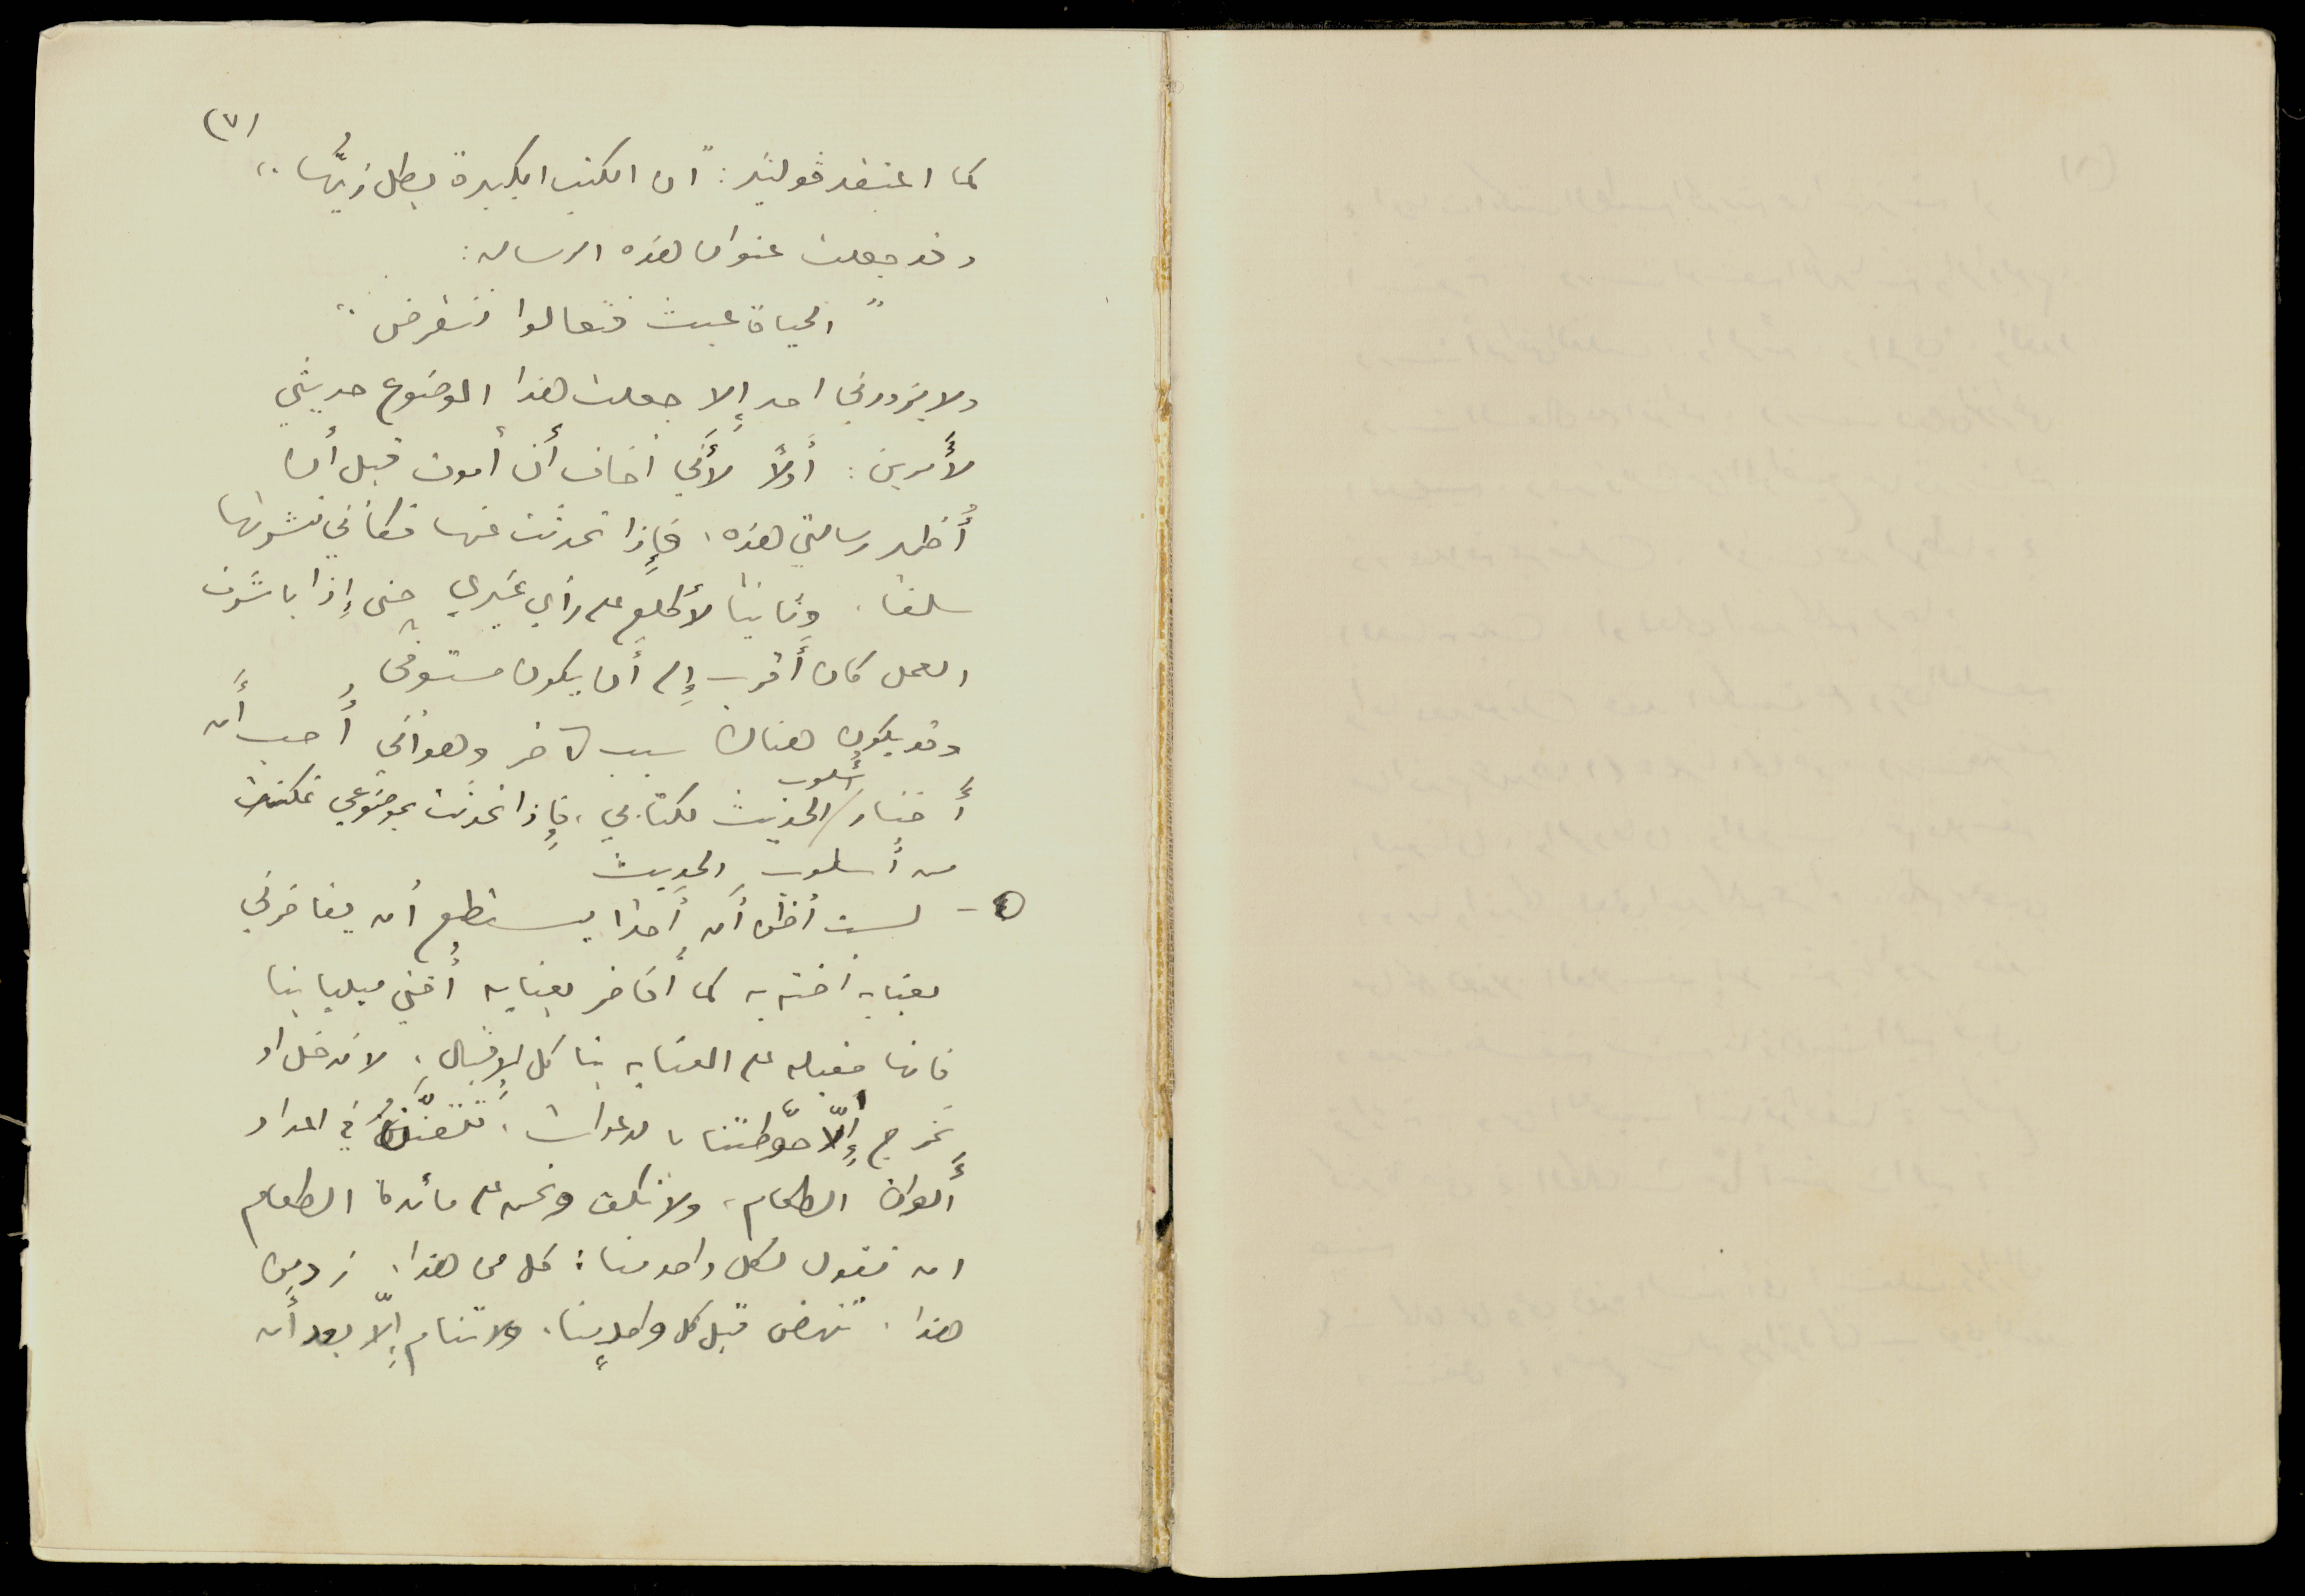 (٧)
كما اعتقد ڤولتير: "ان الكتب الكبيرة بطل زيُّها"
وقد جعلت عنوان هذه الرساله:
"الحياة عبث فتعالوا ننقرض"
ولا يزورني احد إلا جعلت هذا الموضوع حديثي
لأمرين: أولاً لأني أخاف أن أموت قبل أن
أُظهر رسالتي هذه، فإذا تحدثت عنها فكأني نشرتها
سلفا. وثانيا لأطلع على رأي غيري حتى إذا باشرت
العمل كان أقرب إلى أن يكون مستوفى
وقد يكون هناك سبب آخر وهو أني أُحب أن
أَختار أسلوب الحديث لكتابي، فإذا تحدثت بموضوعي تمكنت
من أسلوب الحديث
- لست أظن أن أحدا يستطيع أن يفاخرني
بعنايه أخته به كما أفاخر بعنايه أختي ميليا بنا
فانها مقبله على العنايه بنا كل الإقبال، لا ندخل او
نخرج إلّا حوّطتنا بالدعوات، تتفنّن في اعداد
ألوان الطعام، ولا تكف ونحن على مائدة الطعام
ان تقول لكل واحد منا: كل من هذا، زد من
هذا. تنهض قبل كل واحدٍ منا، ولا تنام إلّا بعد أن